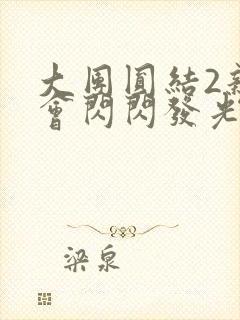 大團圓結2新
會閃閃發光
梁泉